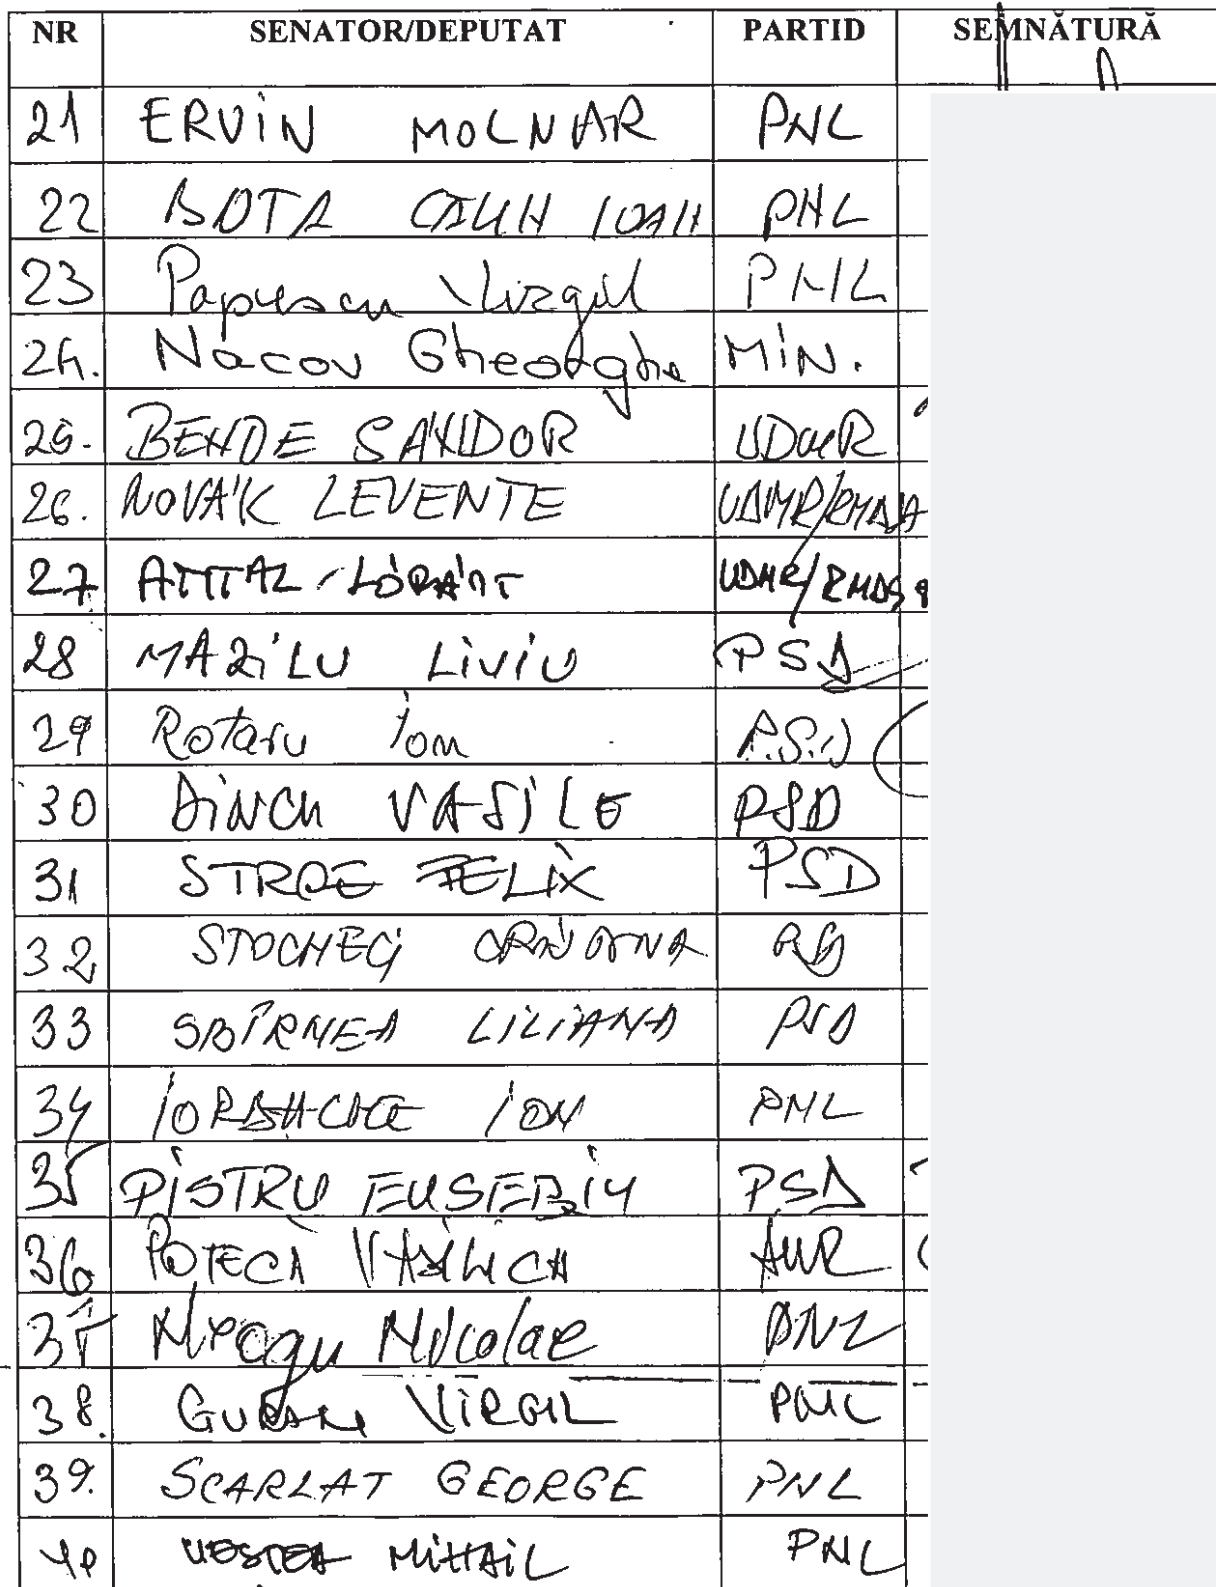 NR SENATOR/DEPUTAT PARTID SEMNĂTURĂ
21 ERViN MOLNAR PNL
22 BOTA CĂLIN IOAN PNL
23 Popescu Virgil PNL
24. Nacov Gheorghe MiN.
25. BENDE SANDOR UDMR
26. NOVÁK LEVENTE UDMR/RMDSZ
27 LÓRÁNT UDMR/RMDSZ
28 MAZiLU LiViU PSD
29 Rotaru Ion P.S.D
30 DîNCU VASiLE PSD
31 STROE FELIX PSD
32 STOCHECI CRISTINA PSD
33 SBÎRNEA LILIANA PSD
34 IORDACHE ION PNL
35 PiSTRU EUSEBiU PSD
36 POTECĂ VASILICĂ AUR
37 Neagu Nicolae PNL
38. GURAN ViRGIL PNL
39. SCARLAT GEORGE PNL
40 VEȘTEA MiHAiL PNL